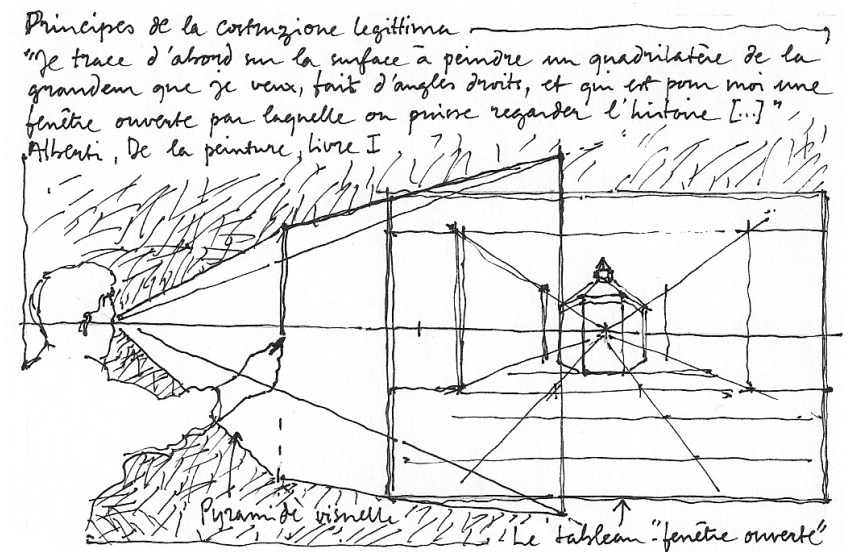 Principes de la costruzione legittima
"Je trace d'abord sur la surface à peindre un quadrilatère de la
grandeur que je veux, fait d'angles droits, et qui est pour moi une
fenêtre ouverte par laquelle on puisse regarder l'histoire [...]"
Alberti, De la peinture, livre I
Pyramide visuelle
Le tableau "fenêtre ouverte"